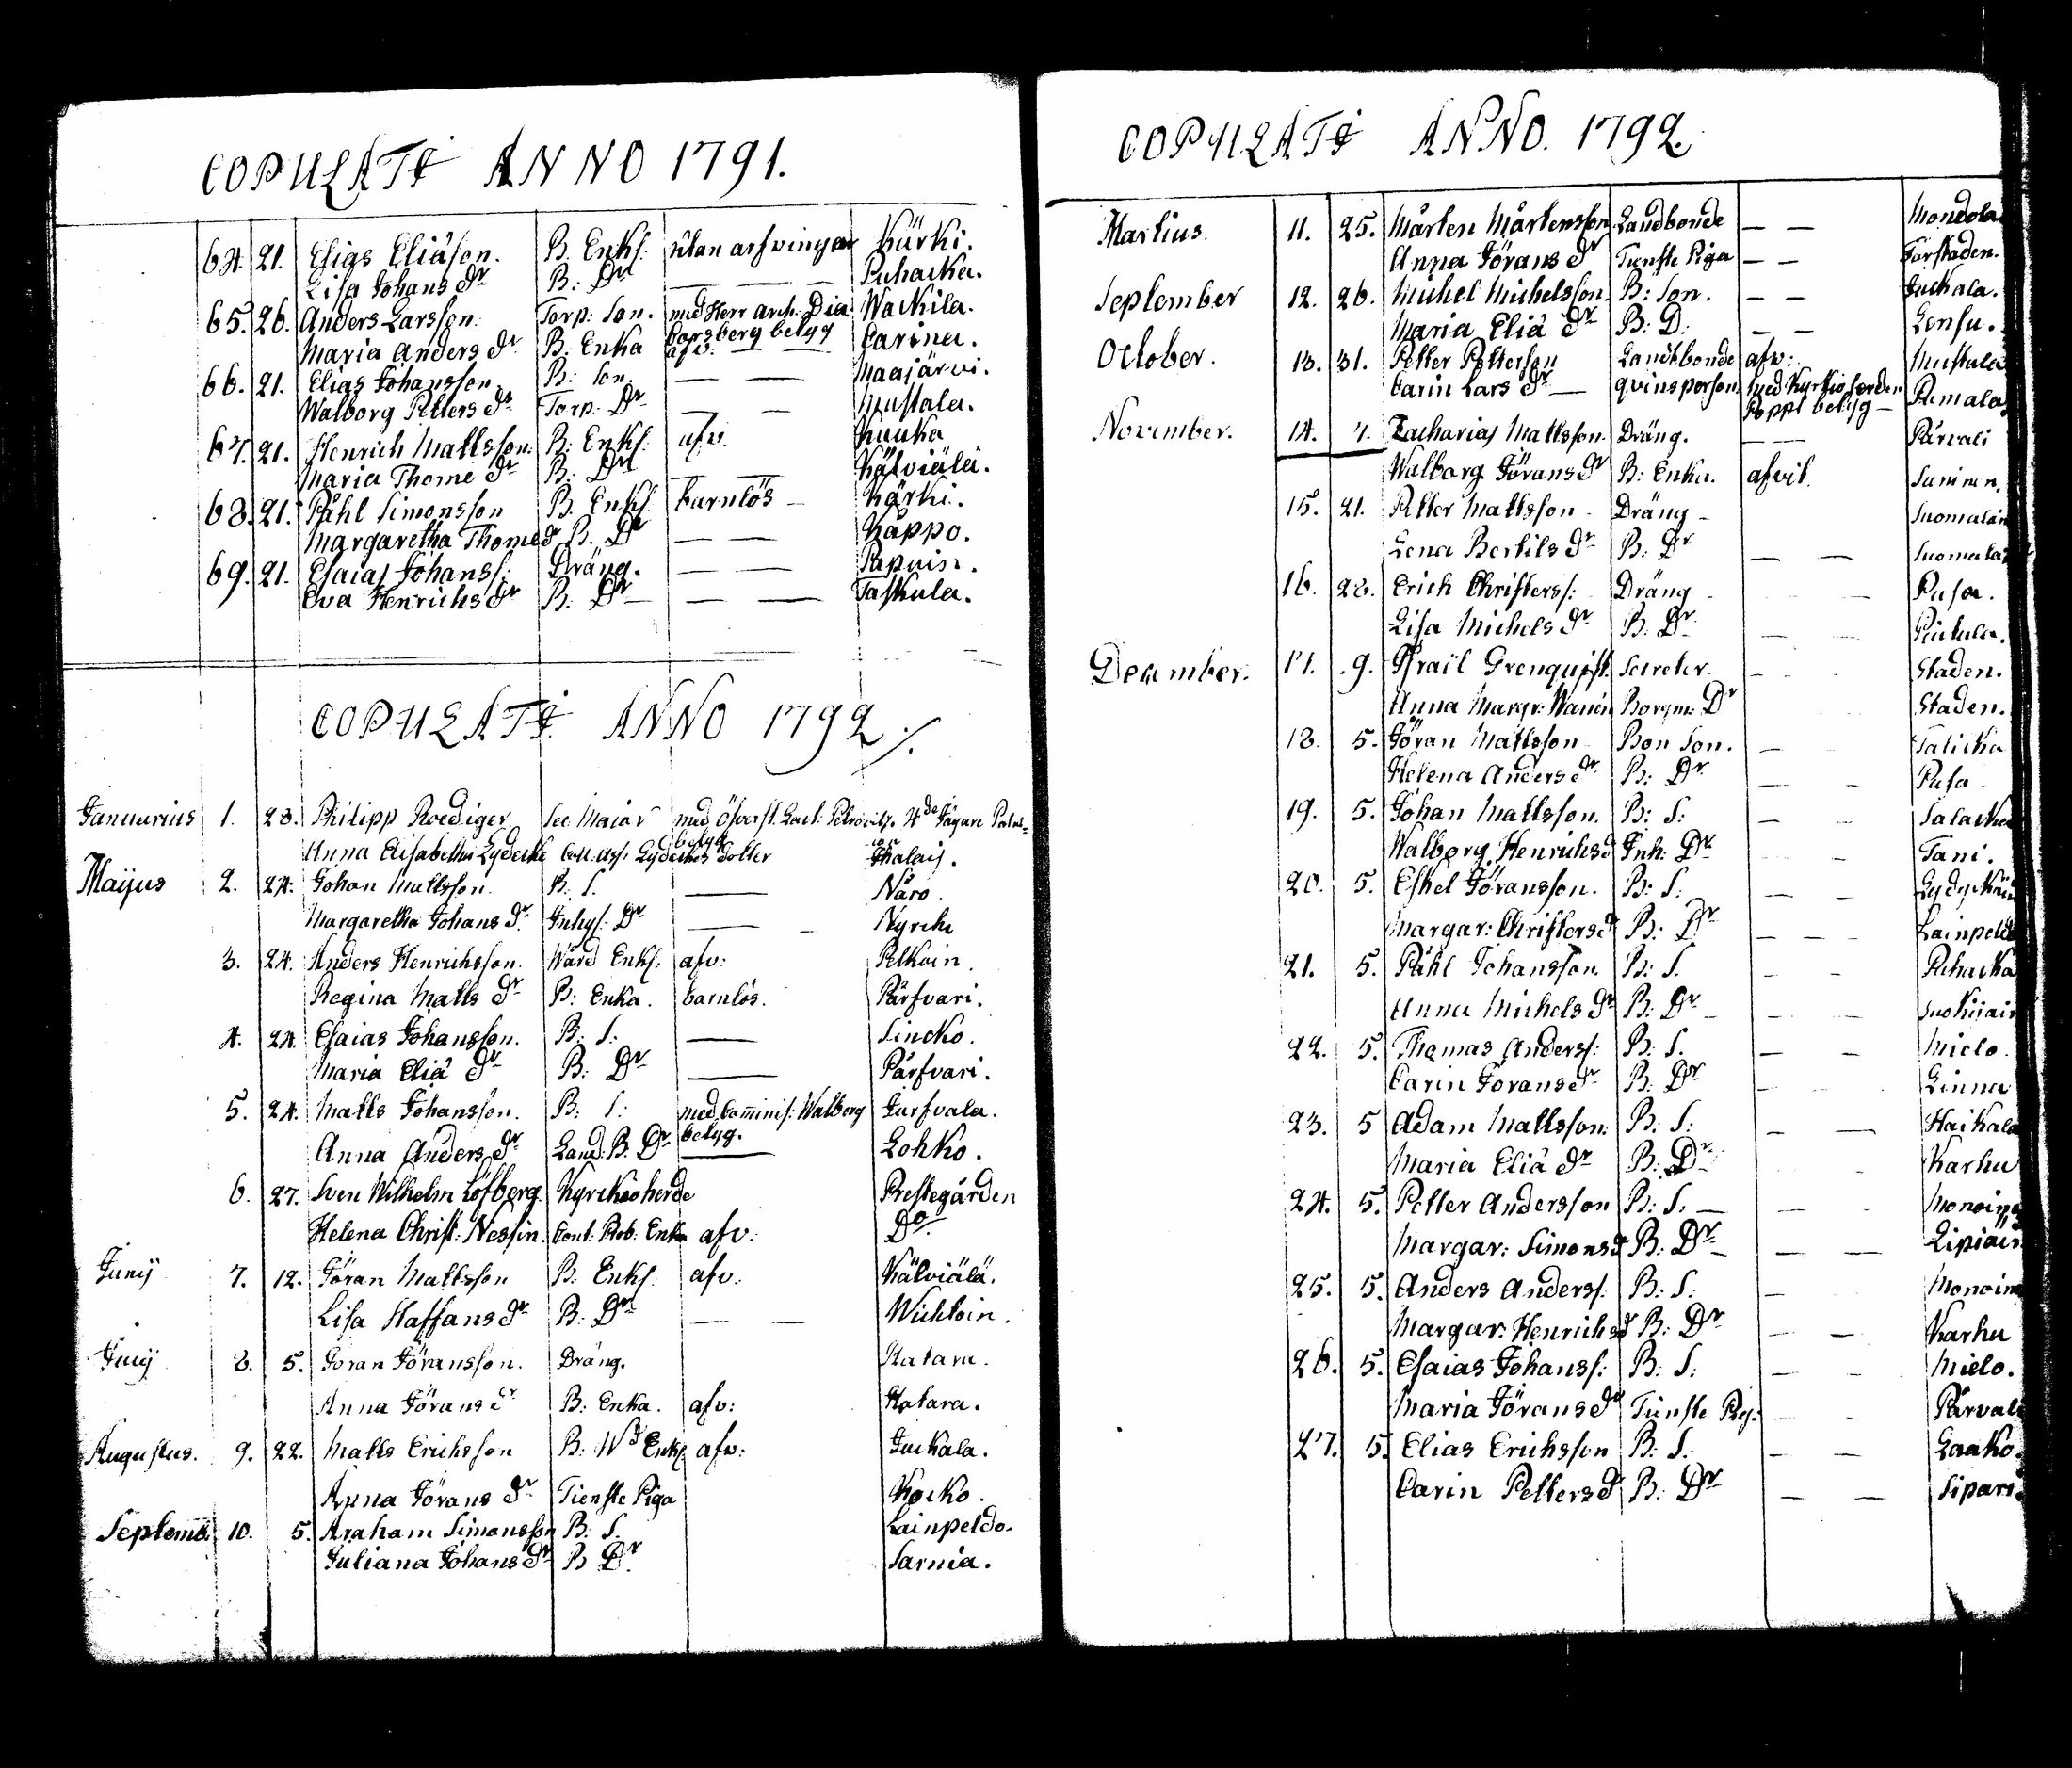 COPULATI ANNO 1791.
64. 21. Elias Eliäson. B. Enkl: utan arfwingar Kürki.
Lisa Johans Dr B: Dr — — — Puhacka.
65. 26. Anders Larsson. Torp: Son. med Herr Arch. Dia: Wackila.
Maria Anders Dr B. Enka afv. Carsberg belyg — — Carina.
66. 21. Elias Johansson. B: Son. — — Maajärvi.
Walborg Petters Dr Torp: Dr — — Mustala.
67. 21. Henrich Mattsson: B: Enkl: afv. Kuuka
Maria Thome Dr B: Dr — Kälviälä.
68. 21. Påhl Simonsson B. Enkl. barnlös — Kärki.
Margaretha Thome Dr B. Dr — — Käppo.
69. 21. Esaias Johanss: Dräng. — —
Eva Henrichs Dr B: Dr — — — Taskula.
COPULATI ANNO 1792.
Januarius 1. 28. Philipp Roediger Sec Maiar med Öfverst. Jägare
belyg
Anna Elisabetha Lydecke Coll: Ass: Lydeckes Dotter
Maijus 2. 24. Johan Mattsson. B: S. — Näro.
Margaretha Johans Dr Inhys: Dr — — Nyrchi
3. 24. Anders Henrichsson. Wärd Enkl: afv: Pelkoin.
Regina Matts Dr B: Enka. barnlös. Pärfvari.
4. 24. Esaias Johansson. B: S: — Sincko.
Maria Eliä Dr B: Dr — Pärfvari.
5. 24. Matts Johansson. B: S: med Comminis: Walberg Jurfvala.
belyg.
Anna Anders Dr Land: B: Dr — Lohko.
6. 27. Sven Wilhelm Löfberg. Kyrckioherde Prestegården
Helena Christ: Nessin. Cont: Prob: Enka afv: Do
Junij 7. 12. Göran Mattsson B: Enkl. afv: Kälviälä.
Lisa Staffans Dr B: Dr — — Wichtoin.
8. 5. Göran Göransson. Dräng. Katara.
Anna Görans Dr B: Enka. afv: Katara.
Augustus. 9. 22. Matts Erichsson B: Wd Enkl: afv: Juckala.
Anna Görans Dr Tienste Piga Kocko.
Septemb. 10. 5. Araham Simonsson B: S. Lainpeldo.
Juliana Johans Dr B Dr Sarnia.
COPULATI ANNO. 1792.
Martius. 11. 25. Mårten Mårtensson. Landbonde — — Mondola
Anna Görans Dr Tienste Piga — — Förstaden.
September 12. 26. Michel Michelsson. B: Son. — — Juckala.
Maria Eliä Dr B: D: — — Lensu.
October. 13. 31. Petter Petterson Landtbonde afv: Mustala
Carin Lars Dr — qvinsperson. med Kyrkioherden Rumala
Poppl belyg —
November. 14. 7. Zacharias Mattsson. Dräng. — — Pärvali
Walborg Görans Dr B: Enka. afvit.
15. 21. Petter Mattsson — Dräng —
Lena Bertils Dr B: Dr — —
16. 28. Erich Christerss: Dräng — — Pusa.
Lisa Michels Dr B: Dr — —
December. 17. 9. Israil Grenquist. Secreter. — Staden.
Anna Margr: Wanén Borgm: Dr — Staden.
18. 5. Göran Mattsson Bon Son. — Talicka
Helena Anders Dr B: Dr — Pusa.
19. 5. Johan Mattsson. B: S: —
Walborg Henrichs Dr Inh: Dr — Tani.
20. 5. Eskel Göransson. B: S: —
Margar: Christers Dr B: Dr — — — Lainpeldo
21. 5. Påhl Johansson. B: S. — — Puhacka
Anna Michels Dr B: Dr — — —
22. 5. Thomas Anderss: B: S. — — Mielo.
Carin Görans Dr B: Dr — — Linna
23. 5 Adam Mattsson. B: S: — — Haikala
Maria Eliä Dr B: Dr — — Karhu
24. 5. Petter Andersson B: S. — — — Monoin
Margar: Simons Dr B: Dr — — — Lipiäis
25. 5. Anders Anderss. B: S: — Monoin
Margar: Henrichs Dr B: Dr — — Karhu
26. 5. Esaias Johanss: B: S: — — Mielo.
Maria Görans Dr Tienste Pig: — — Pärvali
27. 5. Elias Erichsson B: S: — — Laako.
Carin Petters Dr B: Dr — — Sipari.